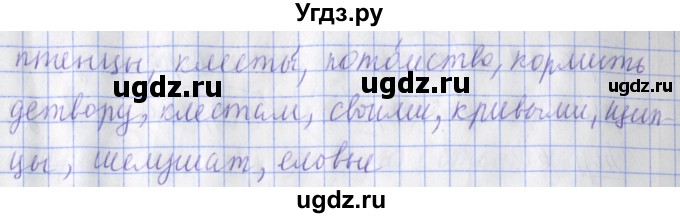 Угдз.ру
птенцы, клесты, потомство, кормить
ugdz.ru ugdz.ru
детвору, клестам, своими, кривыми, щип-
ugdz.ru ugdz.ru
цы, шелушат, еловые
ugdz.ru